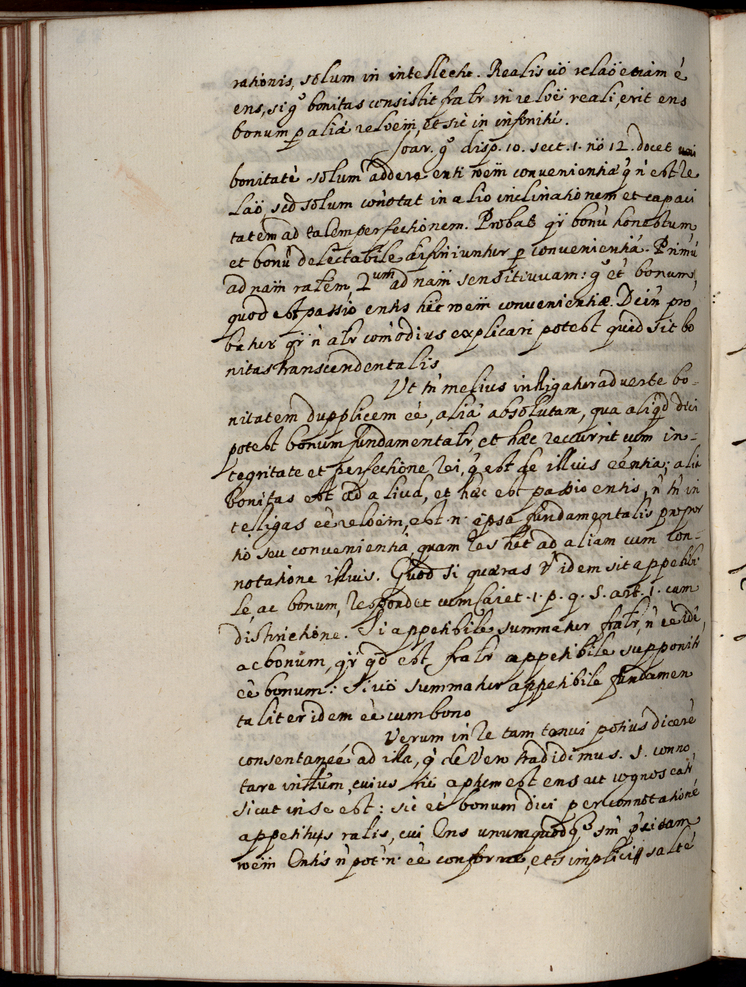 rationis, solum in intellectu. Realis uò relaõ etiam é
ens, si gº bonitas consistit fratr in reloẽ reali, erit ens
bonum p aliã reloẽm, et sic in infinitũ.
Soar. gº disp. 10. sect. 1. nõ 12. docet
bonitatẽ solum addere enti rõẽm convenientiæ q̃ ñ est re
laõ, sed solum coñotat in alio inclinationem et capaci
tatem ad talem perfectionem. Probat qr̃ bonũ honestum,
et bonũ delectabile difiniuntur p convenientiã. Primũ
ad nam̃ ralem, 2um ad nam̃ sensitiuuam: gº et bonum,
quod est passio entis hẽt rõẽm convenientiæ. Dein pro
batur qr̃ ñ alr com̃odius explicari potest quid sit bo
nitas transcendentalis
Ut tñ melius intligatur aduerte bo-
nitatem dupplicem eẽ, aliã absolutam, qua aliqd dici
potest bonum fundamentalr, et hæc reccurrit cum in-
tegritate et perfectione rei, q̃ est de illius eẽntia; alia
bonitas est ad aliud, et hæc est passio entis, ñ tñ in
telligas eẽ reloẽm, est n. ipsa fundamentalis propor
tio seu convenientia, quam res hẽt ad aliam cum con-
notatione illius. Quod si quæras ũ idem sit appetibi
le, ac bonum, respondet cum Caiet. 1. p. q. 5. art. 1. cum
distinctione. Si appetibile summatur fratr, ñ eẽ idẽ,
ac bonum, qr̃ qd est fratr appetibile supponitr
eẽ bonum: Si uò summatur appetibile fundamen
taliter idem eẽ cum bono
Verum in re tam tenui potius dicerẽ
consentaneẽ ad illa, q̃ de Vero tradidimus. S. conno
tare intllum, cuius rẽi aptum est ens ut cognoscatr
sicut in se est: sic et bonum dici per connotationẽ
appetitus ralis, cui Ens unumquodqº sm̃ ipsissam
rõẽm Entis ñ pot n. eẽ conforme, et simplicitr saltẽ